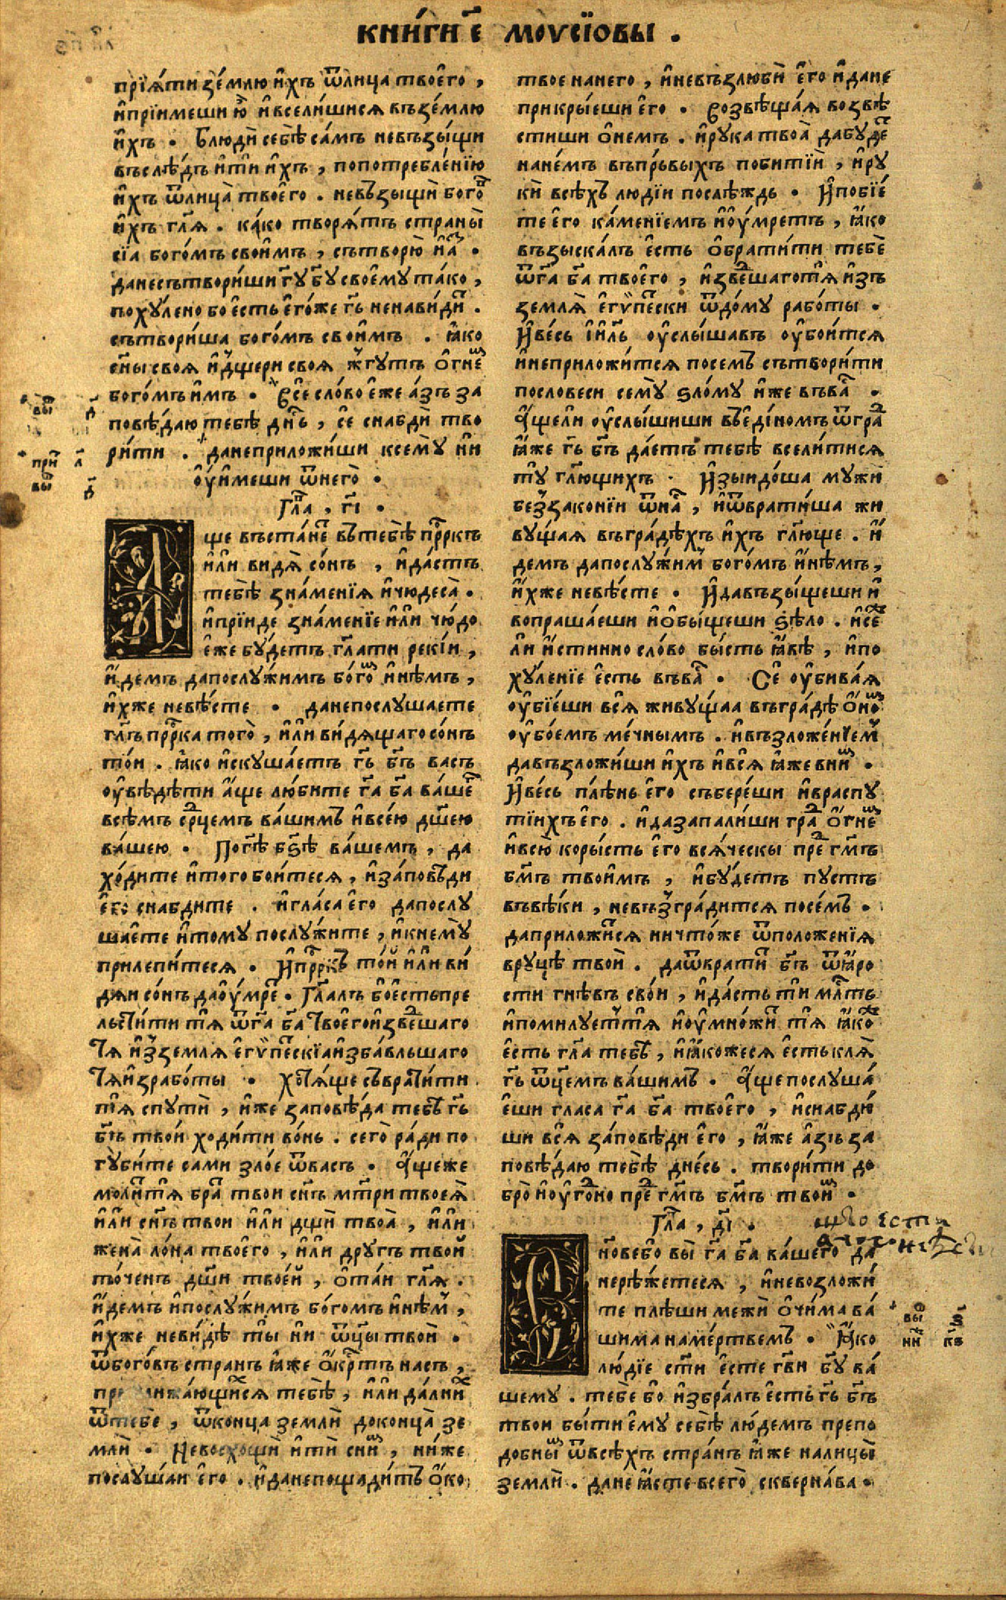 книги є҃ моусїовы .
прїѧ́ти зе́млю и҆́хъ ѿлица твоє́го ,
и҆прїимеши ю҆̀ и҆вселиши́сѧ въ зе́млю
и҆хъ . Блюди̏ себѣ̀ са́мъ невъзы́щи
въслѣ́дъ и҆ти̏ и҆́хъ , попотребле́нїю
и҆хъ ѿлица̀ твоє́го . невъзыщѝ бого́
и҆хъ гл҃ѧ . ка́ко творѧ́тъ страны̀
сїа̀ бого́мъ свои́мъ , сътворю̀ и҆а҆̀ .
данесътвори́ши гд҃у бг҃у своємꙋ та́ко ,
похꙋлено бо є҆сть є҆го́же гд҃ь ненави́ди .
сътвори́ша бого́мъ свои́мъ . ꙗ҆́ко
сн҃ы своѧ и҆дщери своѧ жгꙋтъ о҆гне
бого́мъ и҆́мъ . Все сло́во є҆́же а҆́зъ за
повѣ́даю тебѣ̀ дн҃ь , се̏ снабдѝ тво
ри́ти . данеприложи́ши ксемꙋ̀ ни
ѹ҆́и́меши ѿнего̀ .
Гла , гі҃ .
Аще въста́не втебѣ̀ пррк҃ъ
и҆лѝ видѧ̀ со́нъ , и҆да́стъ
тебѣ̀ зна́менїѧ и҆чюдеса̀ .
и҆прїиде зна́менїе и҆лѝ чю́до
є҆́же бꙋ́детъ гл҃ати рекїи ,
и҆́демъ дапослꙋ́жимъ бого́ и҆нѣ́мъ ,
и҆́хже невѣ́сте . данепослꙋшаете
гл҃ъ пррк҃а того̀ , и҆лѝ ви́дѧщаго со́нъ
то́и . ꙗ҆ко и҆скꙋша́етъ гд҃ь бг҃ъ ва́съ
ѹ҆вѣ́дѣти а҆́ще лю́бите гд҃а бг҃а ва́шего
всѣ́мъ ср҃цемъ ва́шимъ и҆все́ю дш҃ею
ва́шею . По гдѣ̀ бз҃ѣ ва́шемъ , да
хо́дите и҆того бои́тесѧ , и҆за́повѣди
є҆го̀ снабдите . и҆гла́са є҆го̀ дапослꙋ
ша́ете и҆томꙋ послꙋжи́те , и҆кнемꙋ̀
прилепи́тесѧ . И҆пррк҃ъ то́й и҆лѝ ви́
дѧи со́нъ да ѹ҆́мре . Гл҃алъ бо є҆сть пре
льсти́ти тѧ̀ ѿгд҃а бг҃а твоєго̀ и҆зве́шаго
тѧ̀ и҆з̾землѧ̀ є҆гѵ́пескїа и҆зба́вльшаго
тѧ̀ и҆зрабо́ты . хотѧ́ще съврати́ти
тѧ̀ спꙋтѝ , и҆же заповѣ́да тебѣ гд҃ь
бг҃ъ тво́и ходи́ти во́нь . сего̀ ра́ди по
гꙋби́те сами зло́е ѿва́съ . А҆щеже
мо́литъ тѧ̀ бра́тъ твои сн҃ъ мт҃ри твоеѧ̀
и҆лѝ сн҃ъ твои и҆лѝ дщи̏ твоа̀ , и҆лѝ
жена̀ ло́на твоєго , и҆лѝ дрꙋгъ твой
то́ченъ дш҃и твое́й , о҆та́и гл҃ѧ .
и҆́демъ и҆послꙋ́жимъ бо́гомъ и҆нѣ́м ,
и҆́хже неви́дѣ ты̀ ни ѿц҃ы твои̏ .
ѿбого́въ стра́нъ ꙗ҆́же о҆́крⷭтъ на́съ ,
приближа́ющи́хсѧ тебѣ̀ , и҆лѝ да́лни
ѿтебе̏ , ѿконца̀ землѝ до конца̀ зе
млѝ . Невосхощѝ и҆тѝ сни́ми , ни́же
послꙋ́шаи є҆го̀ . и҆данепощади́тъ о҆́ко
твоє нанего̀ , и҆невъзлюби̏ є҆го̀ и҆да не
прикры́еши є҆го̀ . Возвѣща́ѧ возвѣ
сти́ши о҆не́мъ . и҆рꙋка твоа̀ дабꙋ́де
нане́мъ въпрьвыхъ поби́тїи , и҆рꙋ
ки̏ всѣ́хъ люді́и послѣ́ждь . И҆побїє
те є҆го̀ ка́менїемъ и҆ѹ҆́мретъ , ꙗ҆́ко
възыска́лъ є҆сть о҆брати́ти тебѐ
ѿгд҃а бг҃а твоєго̀ , и҆зве́шаго тѧ̀ и҆зъ
землѧ̀ є҆гѵ́пески ѿдо́мꙋ рабо́ты .
И҆ве́сь і҆и҃ль ѹ҆слы́шавъ ѹ҆бои́тсѧ
и҆неприложи́тсѧ посе́мъ сътвори́ти
пословеси семꙋ̀ ѕло́мꙋ и҆же въва́съ .
А҆ще ли ѹ҆слы́шиши въє҆ди́номъ ѿгра́дъ
ꙗ҆́же гд҃ь бг҃ъ дае́тъ тебѣ̀ вселитисѧ
тꙋ̀ гл҃ющихъ . И҆зыидо́ша мꙋ́жи
без̾зако́нїи ѿна́съ , и҆ѿврати́ша жи
вꙋ́щаѧ въгра́дѣхъ и҆́хъ гл҃юще . и҆́
демъ дапослꙋ́жим бого́мъ и҆нѣ́мъ ,
и҆́хже невѣ́сте . И҆давъзы́щеши и҆
вопраша́еши и҆о҆бы́щеши ѕѣло̀ . и҆се̏
ли и҆́стинно сло́во бы́сть ꙗ҆́вѣ , и҆по
хꙋ́ленїе є҆сть въва́съ . Се̏ ѹ҆бива́ѧ
ѹ҆бїе́ши всѧ̀ живꙋщаа въгра́дѣ о҆́но
ѹ҆бо́емъ ме́чнымъ . и҆възложе́нїем
давъзложи́ши и҆́хъ и҆всѧ̀ ꙗ҆́же вни́ .
И҆ве́сь плѣ́нь є҆го̀ събере́ши и҆враспꙋ
тїи́хъ є҆го̀ . и҆дазапали́ши гра́дъ о҆гне
и҆всю̀ коры́сть є҆го̀ всѧ́ческы пре гд҃мъ
бг҃мъ твои́мъ , и҆бꙋ́детъ пꙋ́стъ
въвѣ́ки , невъз̾гра́дитсѧ посе́мъ .
даприложи́тсѧ ничто́же ѿположе́нїѧ
врꙋ́цѣ твоѝ . даѿврати́т бг҃ъ ѿꙗ҆́ро
сти гнѣ́въ сво́и , и҆да́сть тѝ мл҃ть
и҆помилꙋет тѧ̀ и҆ѹ҆мно́жи тѧ̀ ꙗ҆́ко
є҆сть гл҃а тебѣ̀ , и҆ꙗ҆́кожесѧ є҆сть клѧ̀
гд҃ь ѿц҃емъ ва́шимъ . А҆́ще послꙋша́
єши гласа гд҃а бг҃а твоєго , и҆снабди́
ши всѧ̀ за́повѣди є҆го̀ , ꙗ҆́же а҆зъ за
повѣ́даю тебѣ̀ дне́сь . твори́ти до
бро̀ и҆ѹ҆го́дно пре гд҃мъ бг҃мъ твои́ .
Гла , ді҃ .
Сн҃ове бо̀ вы̀ гд҃а бг҃а вашего̀ да
нерѣ́жетесѧ , и҆невозложи́
те плѣ́ши межѝ о҆чи́ма ва́
шима наме́ртвемъ . Ꙗ҆́ко
лю́дїе ст҃и є҆сте гд҃ви бг҃ꙋ ва́
шемꙋ . тебе̏ бо и҆збра́лъ є҆сть гд҃ь бг҃ъ
твои бы́ти є҆мꙋ̀ себѣ̀ лю́демъ препо
до́бны ѿвсѣ́хъ стра́нъ ꙗ҆́же налицы̀
землѝ . да не ꙗ҆́сте всего̀ скве́рнава .